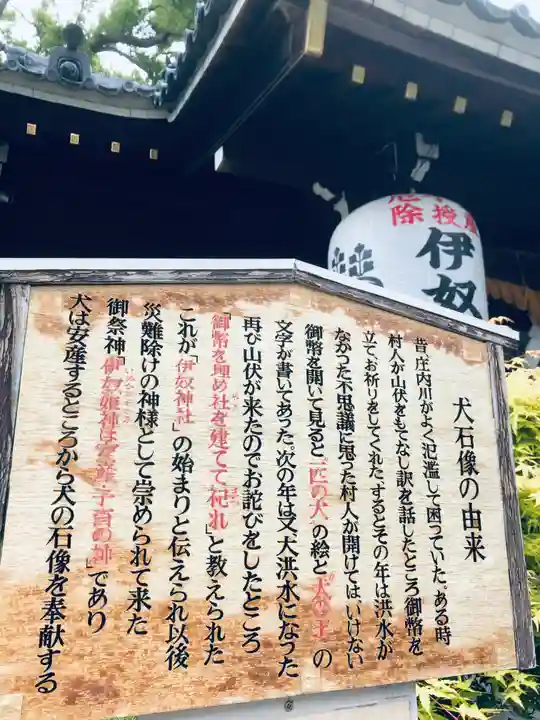 犬石像の由来
昔庄内川がよく氾濫して困っていた。ある時
村人が山伏をもてなし訳を話したところ御幣を
立て、お祈りをしてくれた。するとその年は洪水が
なかった不思議に思った村人が開けてはいけない
御幣を開いて見ると「一匹の犬」の絵と「犬の王」の
文字が書いてあった。次の年は又、大洪水になった
再び山伏が来たのでお詫びをしたところ
「御幣を埋め社を建てて祀れ」と教えられた
これが「伊奴神社」の始まりと伝えられ以後
災難除けの神様として崇められて来た
御祭神「伊奴姫神は安産・子育の神」であり
犬は安産するところから犬の石像を奉献する
伊奴
授
除